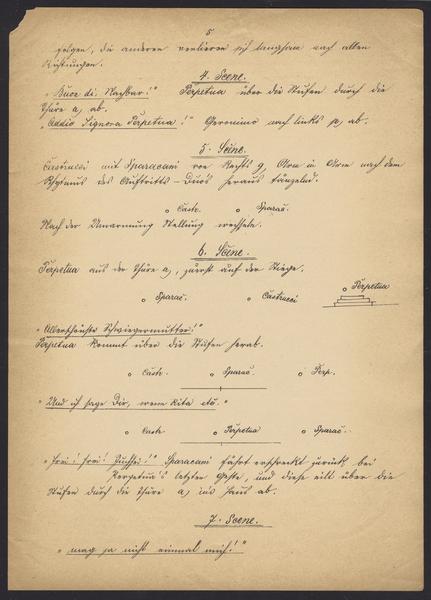 5
folgen, die anderen verlieren sich langsam nach allen
Richtungen.
4. Scene.
"Buon di, Nachbar!" Perpetua über die Stufen durch die
Thüre a, ab.
"Addio Signora Perpetua!" Geronimo nach links p, ab.
5. Scene.
Castrucci mit Sparacani von Rechts g, Arm in Arm nach dem
Rhytmus des Auftritts-Duo's heraus tänzelnd.
Castr. Sparac.
Nach der Umarmung Stellung wechseln.
6. Scene.
Perpetua aus der Thüre a, zuerst auf der Stiege.
Sparac. Castrucci Perpetua
Schwiegermutter!"
Perpetua kommt über die Stufen herab.
Castr. Sparac. Perp.
"Und ich sage Dir, wenn Rita etc."
Castr. Perpetua Sparac.
"frei! frei! Sparacani fährt erschreckt zurück, bei
Perpetua's letzter Geste, und diese eilt über die
Stufen durch die Thüre a, ins Haus ab.
7. Scene.
"mag ja nicht einmal mich!"